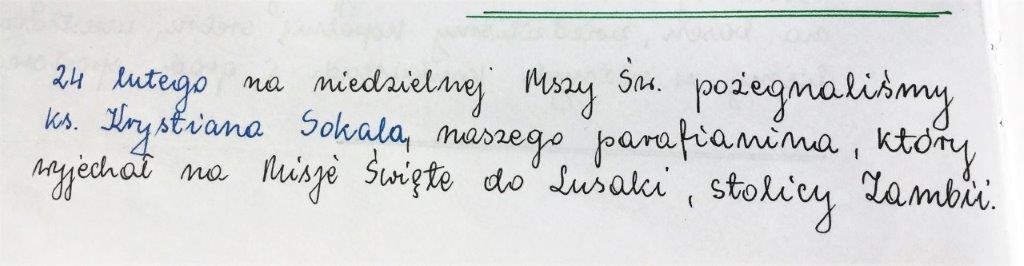 24 lutego na niedzielnej Mszy Św. pożegnaliśmy
ks. Krystiana Sokala, naszego parafianina, który
wyjechał na Misje Święte do Lusaki, stolicy Zambii.